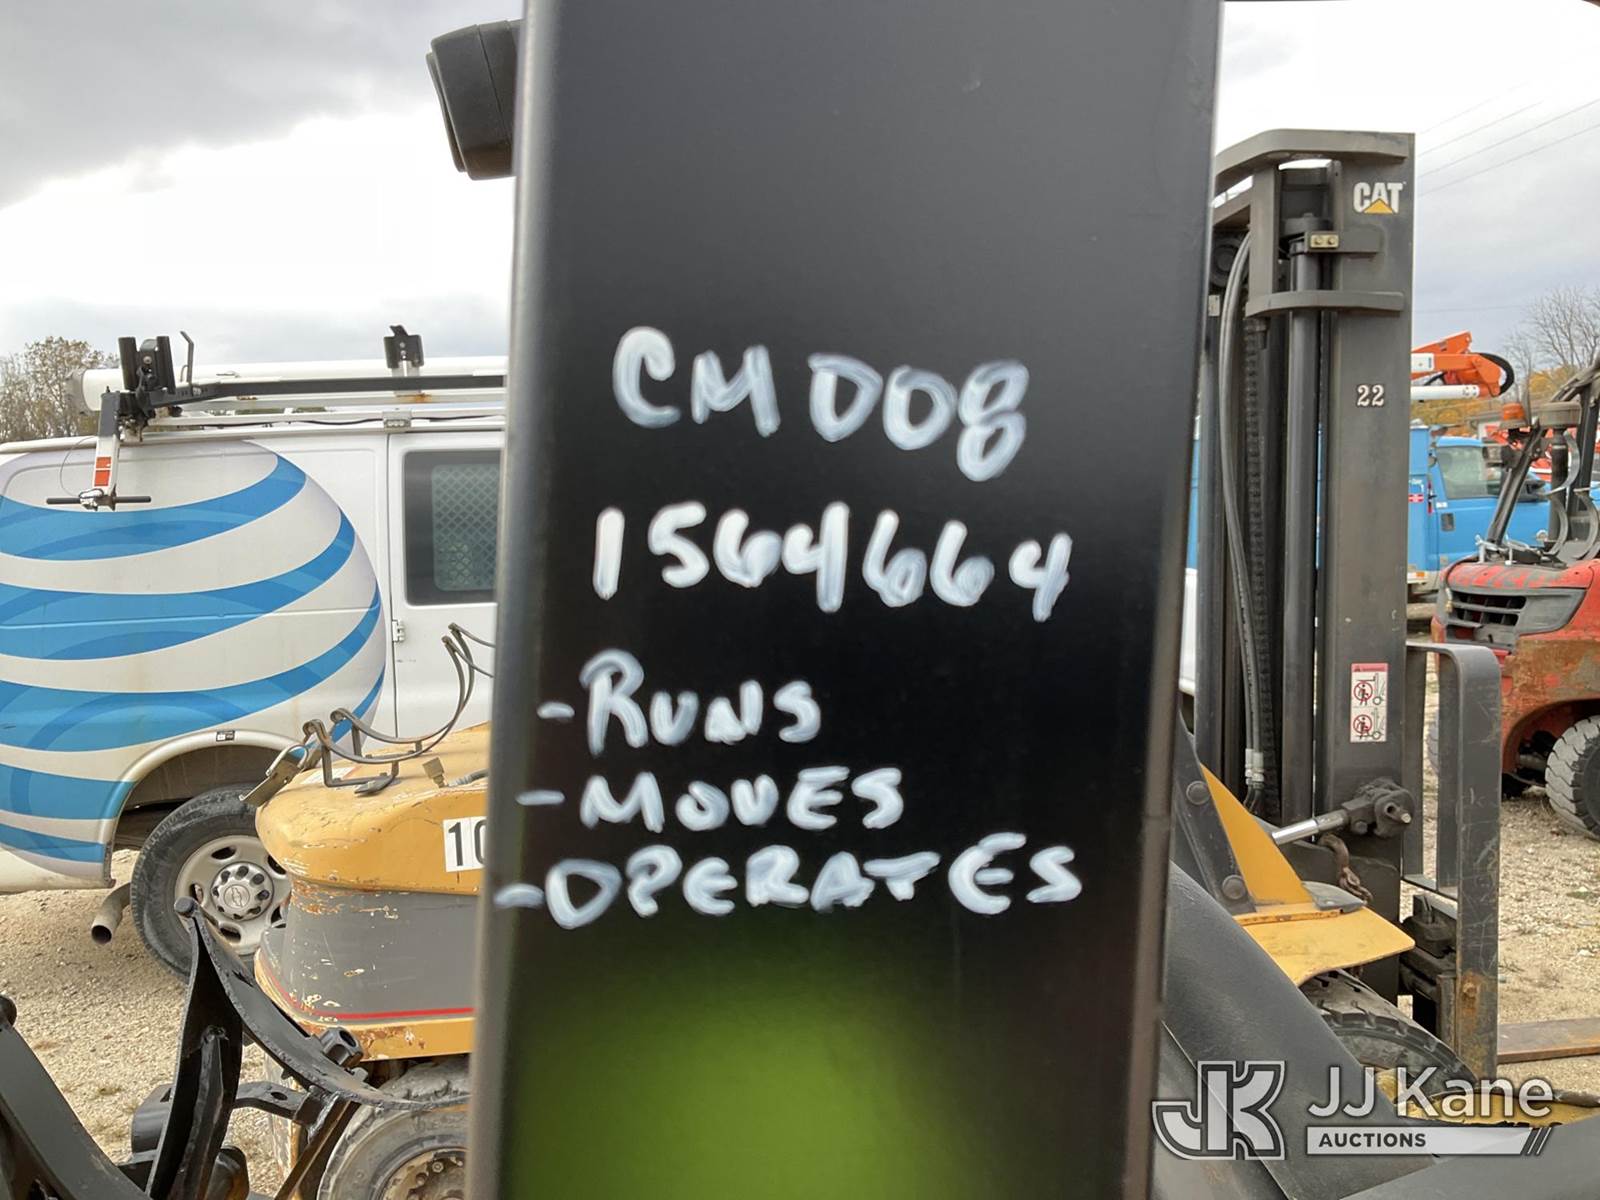 CAT
CM008
22
1564664
-RUNS
-MOVES
10
-OPERATES
JK JJ Kane
AUCTIONS